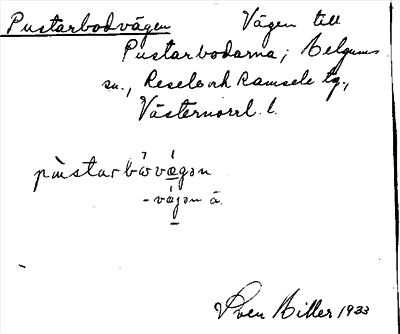 Pustarbodvägen Vägen till
Pustarbodarna; Helgums
sn., Resele och Ramsele tg.,
Västernorrl. l.
pùstarbὼvǽgən
-vǽgən ä.
Sven Hiller 1933